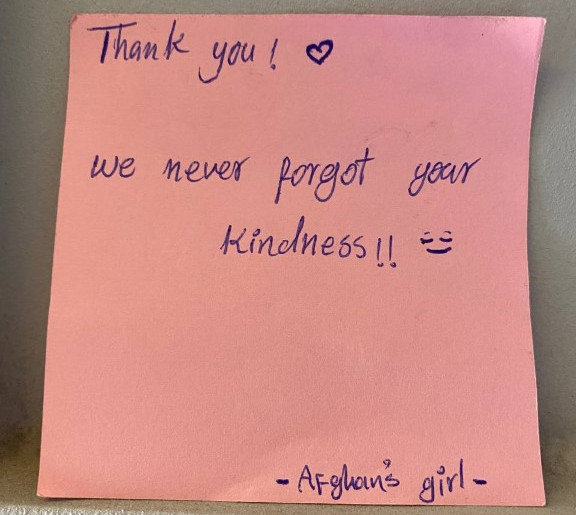 Thank you! ♡
we never forgot your
kindness!!
- Afghan's girl -